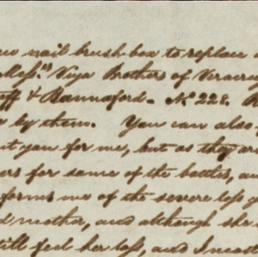 nail brush box to replace
Mess.rs Viya Brothers of Veracru
& Bannaford. No 228.
by them. You can also
you for me, but as they ar
for some of the bottles, an
forms me of the severe loss
mother, and although she
still feel her loss, and I